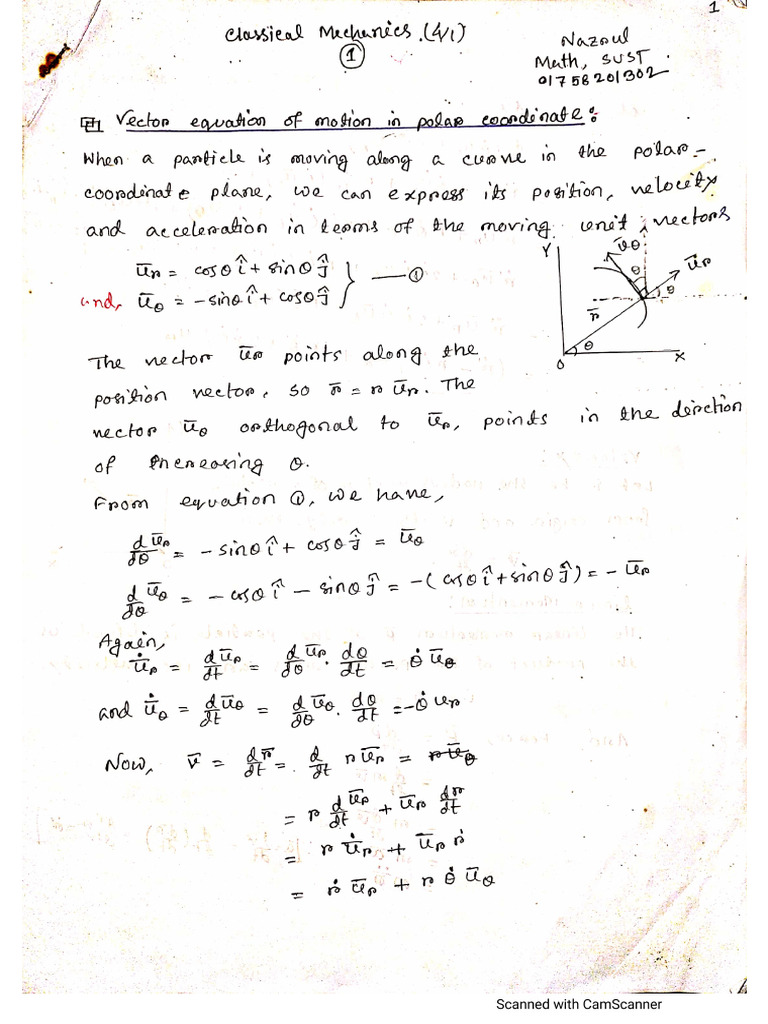 1
Classical Mechanics. (4/1)
①
Nazrul
Math, SUST
01758201302
Vector equation of motion in polar coordinate:
When a particle is moving along a curve in the polar-
coordinate plane, we can express its position, velocity
and acceleration in terms of the moving unit vectors
ū_r = cosθ î + sinθ ĵ
and, ū_θ = -sinθ î + cosθ ĵ } —— ①
Y ū_θ θ ū_r θ r̄ θ O X
The vector ū_r points along the
position vector, so r̄ = r ū_r. The
vector ū_θ orthogonal to ū_r, points in the direction
of increasing θ.
From equation ①, we have,
d/dθ ū_r = - sinθ î + cosθ ĵ = ū_θ
d/dθ ū_θ = - cosθ î - sinθ ĵ = -(cosθ î + sinθ ĵ) = - ū_r
Again,
ū̇_r = d/dt ū_r = d/dθ ū_r . dθ/dt = θ̇ ū_θ
and ū̇_θ = d/dt ū_θ = d/dθ ū_θ . dθ/dt = -θ̇ u_r
Now, v̄ = dr̄/dt = d/dt r ū_r = r ū_θ
= r d/dt ū_r + ū_r dr/dt
= r ū̇_r + ū_r ṙ
= ṙ ū_r + r θ̇ ū_θ
Scanned with CamScanner